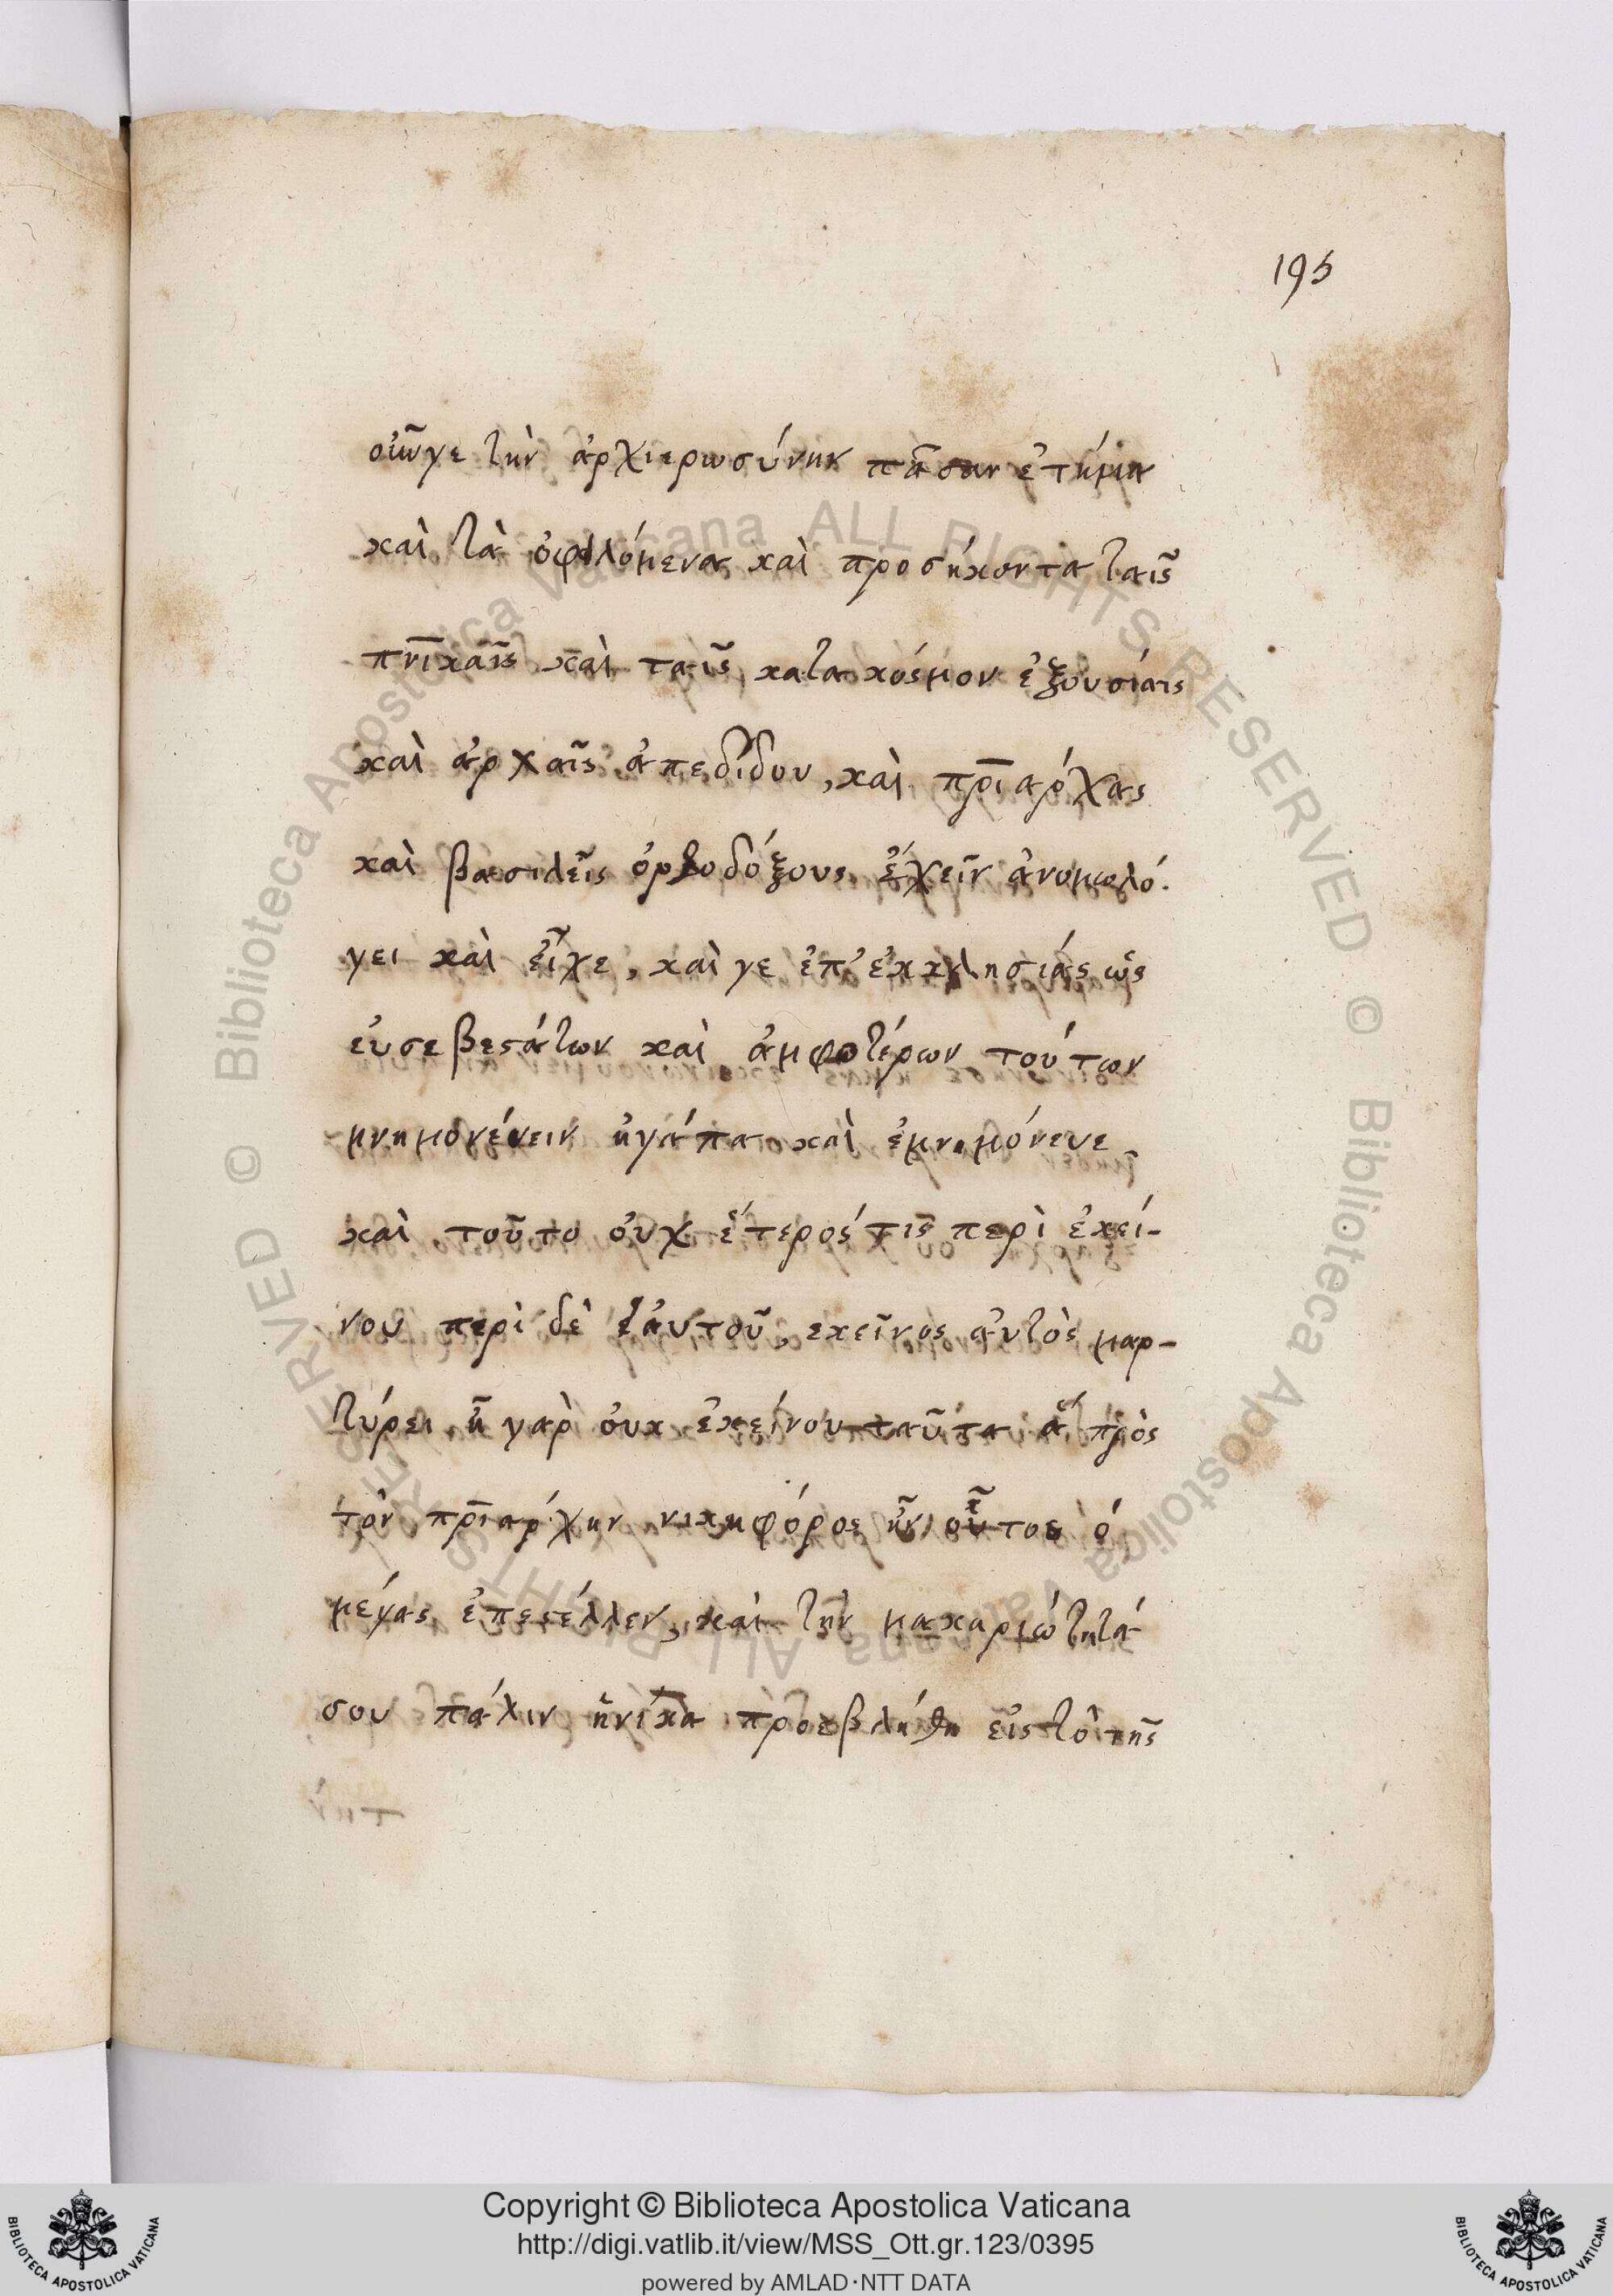 195
οἰῶγε τὴν ἀρχιερωσύνην πᾶσαν ἐτήμα
καὶ τὰ ὀφιλόμενα καὶ προσήκοντα ταῖς
πνικαῖς καὶ ταῖς κατα κόσμον ἐξουσίαις
καὶ ἀρχαῖς ἀπεδίδου, καὶ πριάρχας
καὶ βασιλεῖς ὀρθοδόξους ἔχειν ἀνομωλό-
γει καὶ εἶχε, καὶ γε ἐπ' ἐκκλησίας ὡς
εὐσεβεστάτων καὶ ἀμφοτέρων τούτων
μνημονεύειν ἠγάπα καὶ ἐμνημόνευε
καὶ τοῦτο οὐχ ἕτερός τις περὶ ἐκεί-
νου περὶ δὲ ἑαυτοῦ, εκεῖνος ἀυτὸς μαρ-
τύρει ἢ γαρ ὀυκ ἐκείνου ταῦτα ἃ πρὸς
τὸν πριάρχην νικηφόρος ἦν οὗτος ὁ
μέγας ἐπεστέλλεν, καὶ τὴν μακαριώτητά
σου πάλιν ἡνίκα προεβλήθη εἰς τὸ τῆς
Copyright © Biblioteca Apostolica Vaticana
http://digi.vatlib.it/view/MSS_Ott.gr.123/0395
powered by AMLAD·NTT DATA
BIBLIOTECA APOSTOLICA VATICANA
BIBLIOTECA APOSTOLICA VATICANA